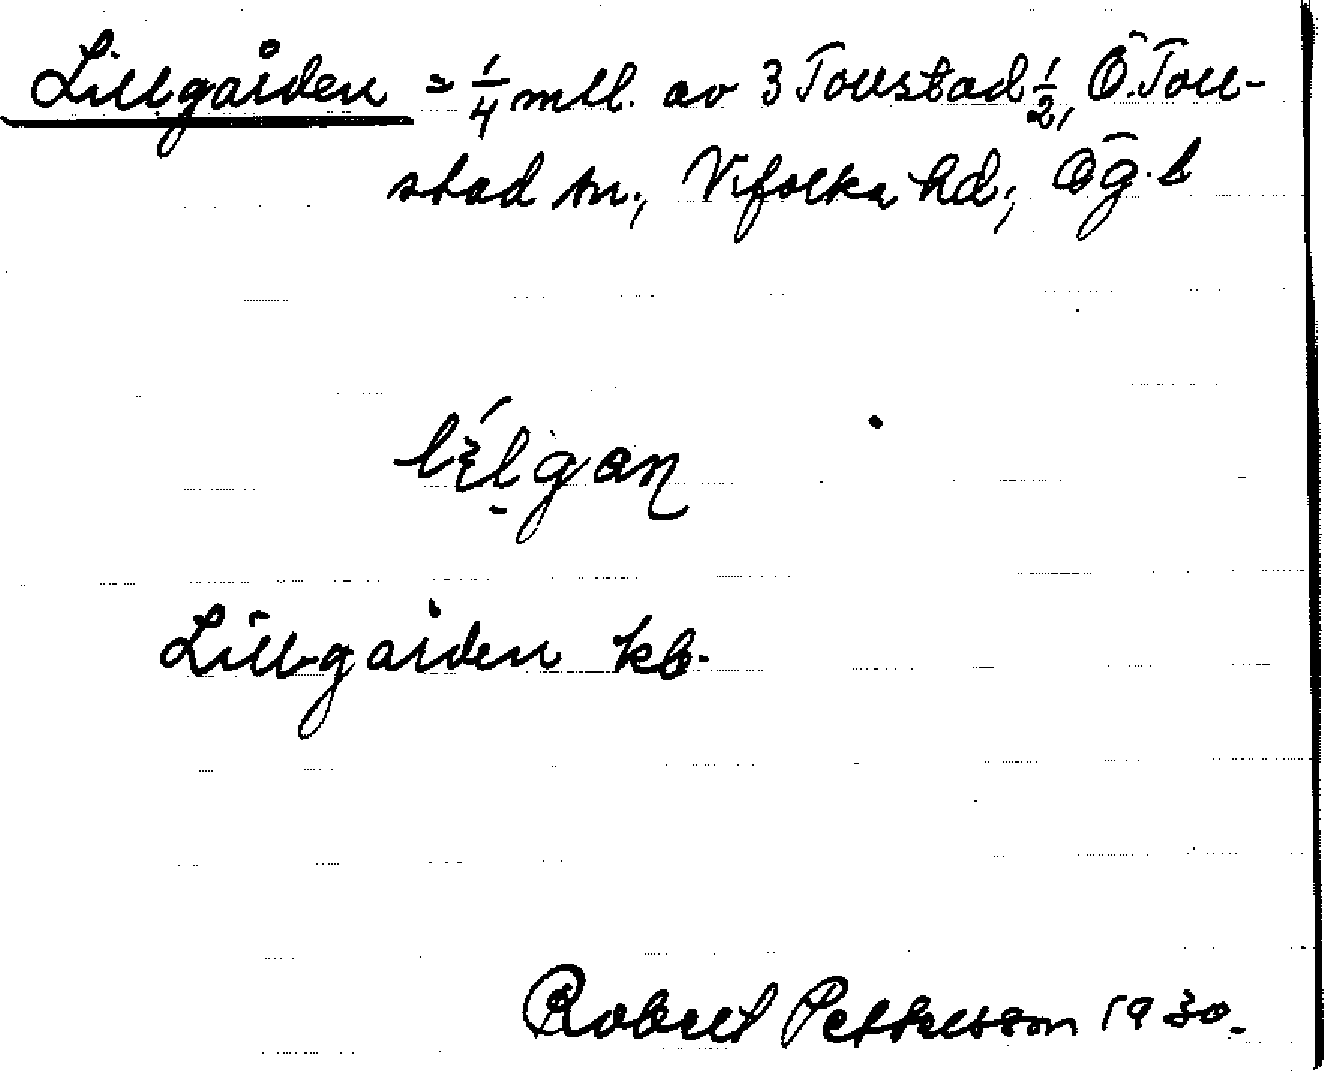 Lillgården = 1/4 mtl. av 3 Tollstad 1/2, Ö. Toll-
stad sn., Vifolka hd., Ög. l
Lillgården kb.
Robert Pettersson 1930.